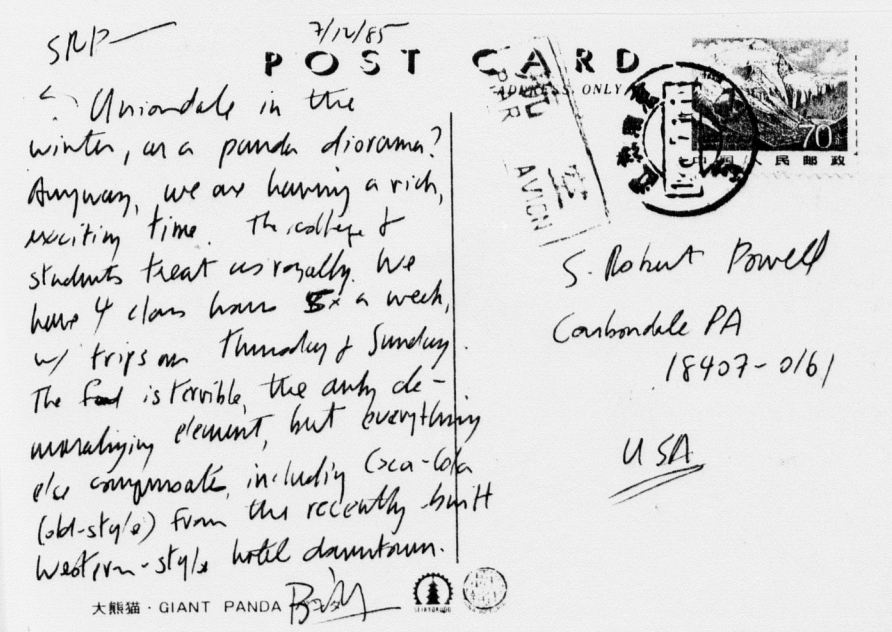 SRP—
7/12/85
POST CARD
ADDRESS ONLY
PAR AVION
70
中国人民邮政
? Uniondale in the
winter, or a panda diorama?
Anyway, we are having a rich,
exciting time. The college &
students treat us royally. We
have 4 class hours 5x a week,
w/ trips on Thursday & Sunday.
The food is terrible, the only de-
moralizing element, but everything
else compensates, including Coca-Cola
(old-style) from the recently-built
Western-style hotel downtown.
S. Robert Powell
Carbondale PA
18407-0161
USA
大熊猫 · GIANT PANDA